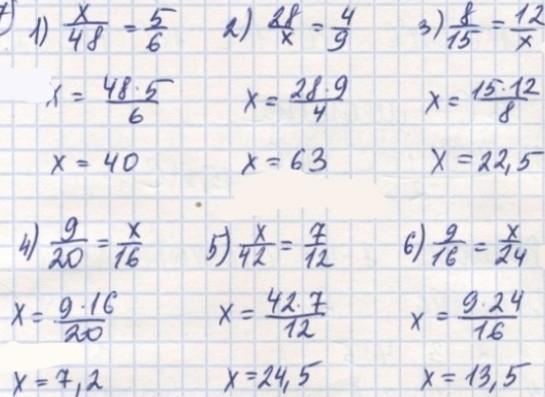 1) x/48 = 5/6 2) 28/x = 4/9 3) 8/15 = 12/x
x = 48·5/6 x = 28·9/4 x = 15·12/8
x = 40 x = 63 x = 22,5
4) 9/20 = x/16 5) x/42 = 7/12 6) 9/16 = x/24
x = 9·16/20 x = 42·7/12 x = 9·24/16
x = 7,2 x = 24,5 x = 13,5